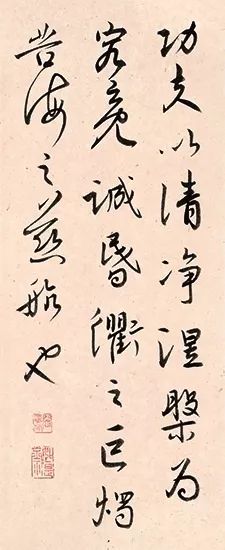 功夫以清净涅槃为
究竟誠昏衢之巨燭
苦海之慈航也